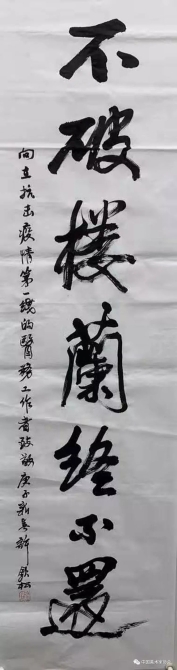 不破楼蘭终不還
向在抗击疫情第一线的醫務工作者致敬庚子新春許钦松